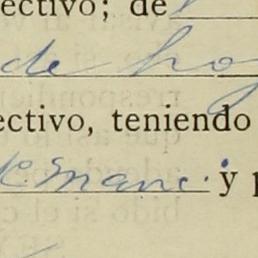 ectivo; de
de ho
ectivo, teniendo
y p